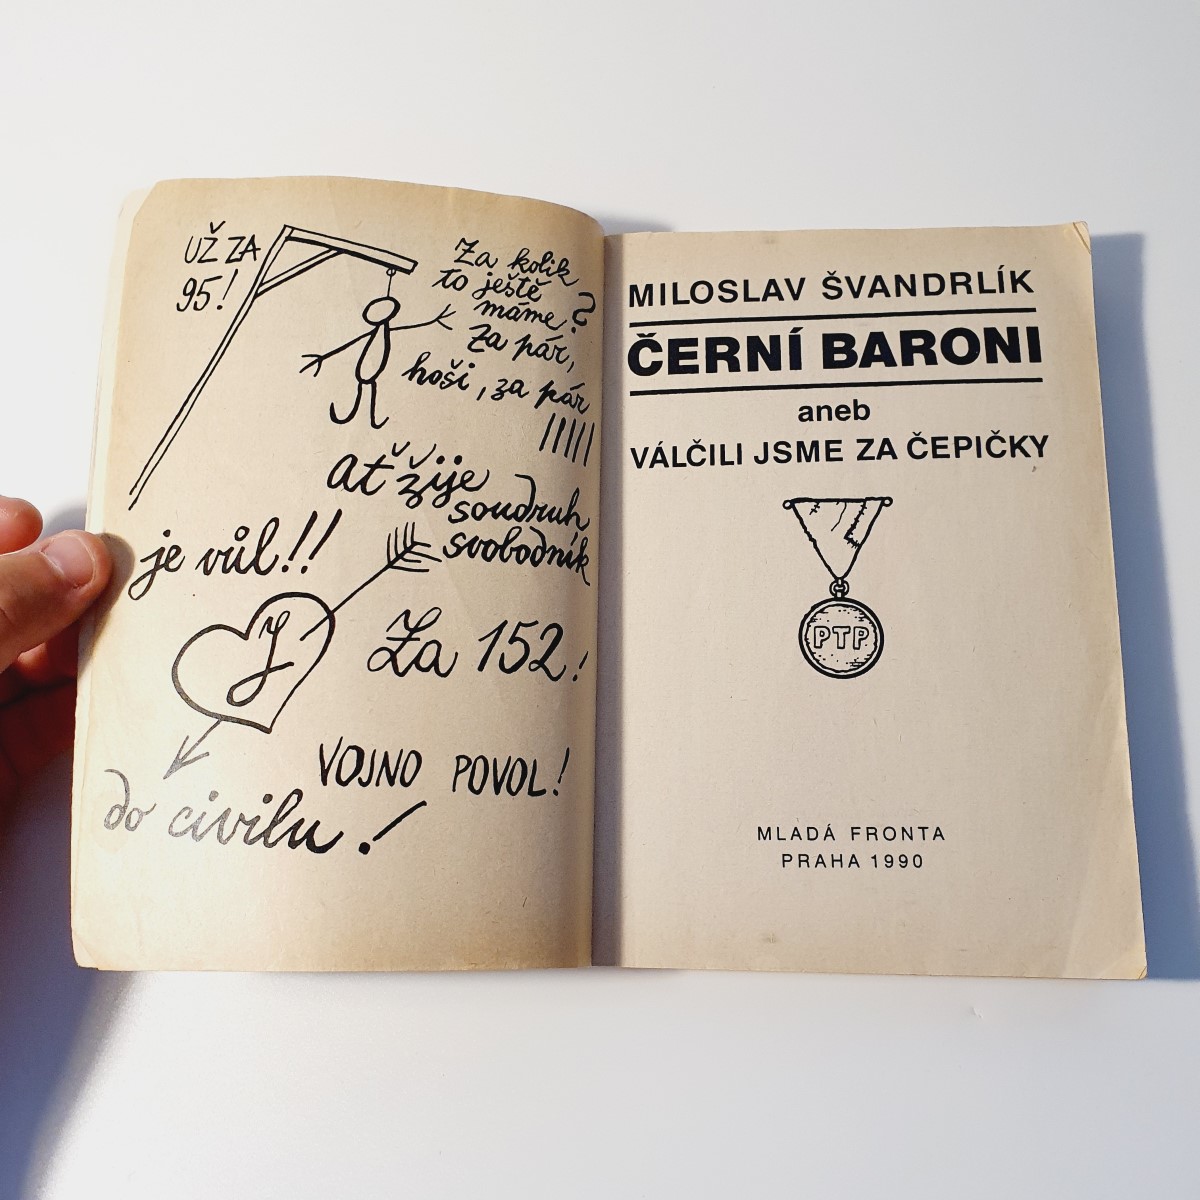 UŽ ZA
95!
Za kolik
to ještě
máme?
Za pár,
hoši, za pár
Ať žije
soudruh
svobodník
je vůl!!
J
Za 152!
VOJNO POVOL!
do civilu!
MILOSLAV ŠVANDRLÍK
ČERNÍ BARONI
aneb
VÁLČILI JSME ZA ČEPIČKY
PTP
MLADÁ FRONTA
PRAHA 1990